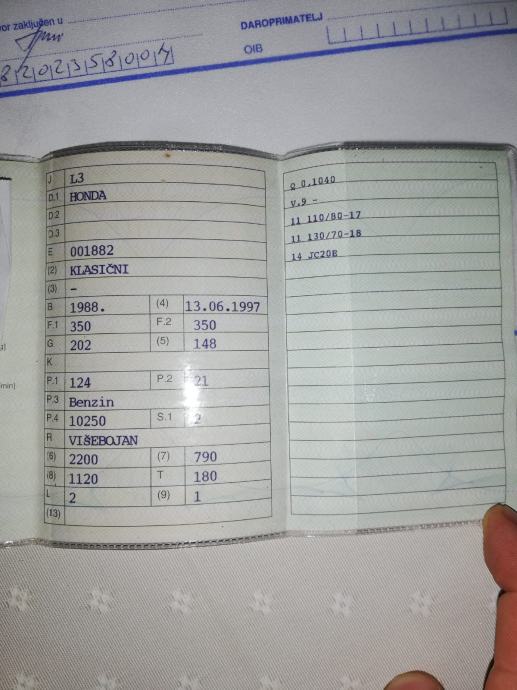 vor zaključen u
DAROPRIMATELJ
OIB
8 2 0 2 3 5 8 0 0 4
J L3
D.1 HONDA
D.2
D.3
E 001882
(2) KLASIČNI
(3) -
B 1988. (4) 13.06.1997
F.1 350 F.2 350
G 202 (5) 148
K
P.1 124 P.2 21
P.3 Benzin
P.4 10250 S.1 2
R VIŠEBOJAN
(6) 2200 (7) 790
(8) 1120 T 180
L 2 (9) 1
(13)
Q 0,1040
V.9 -
11 110/80-17
11 130/70-18
14 JC20E